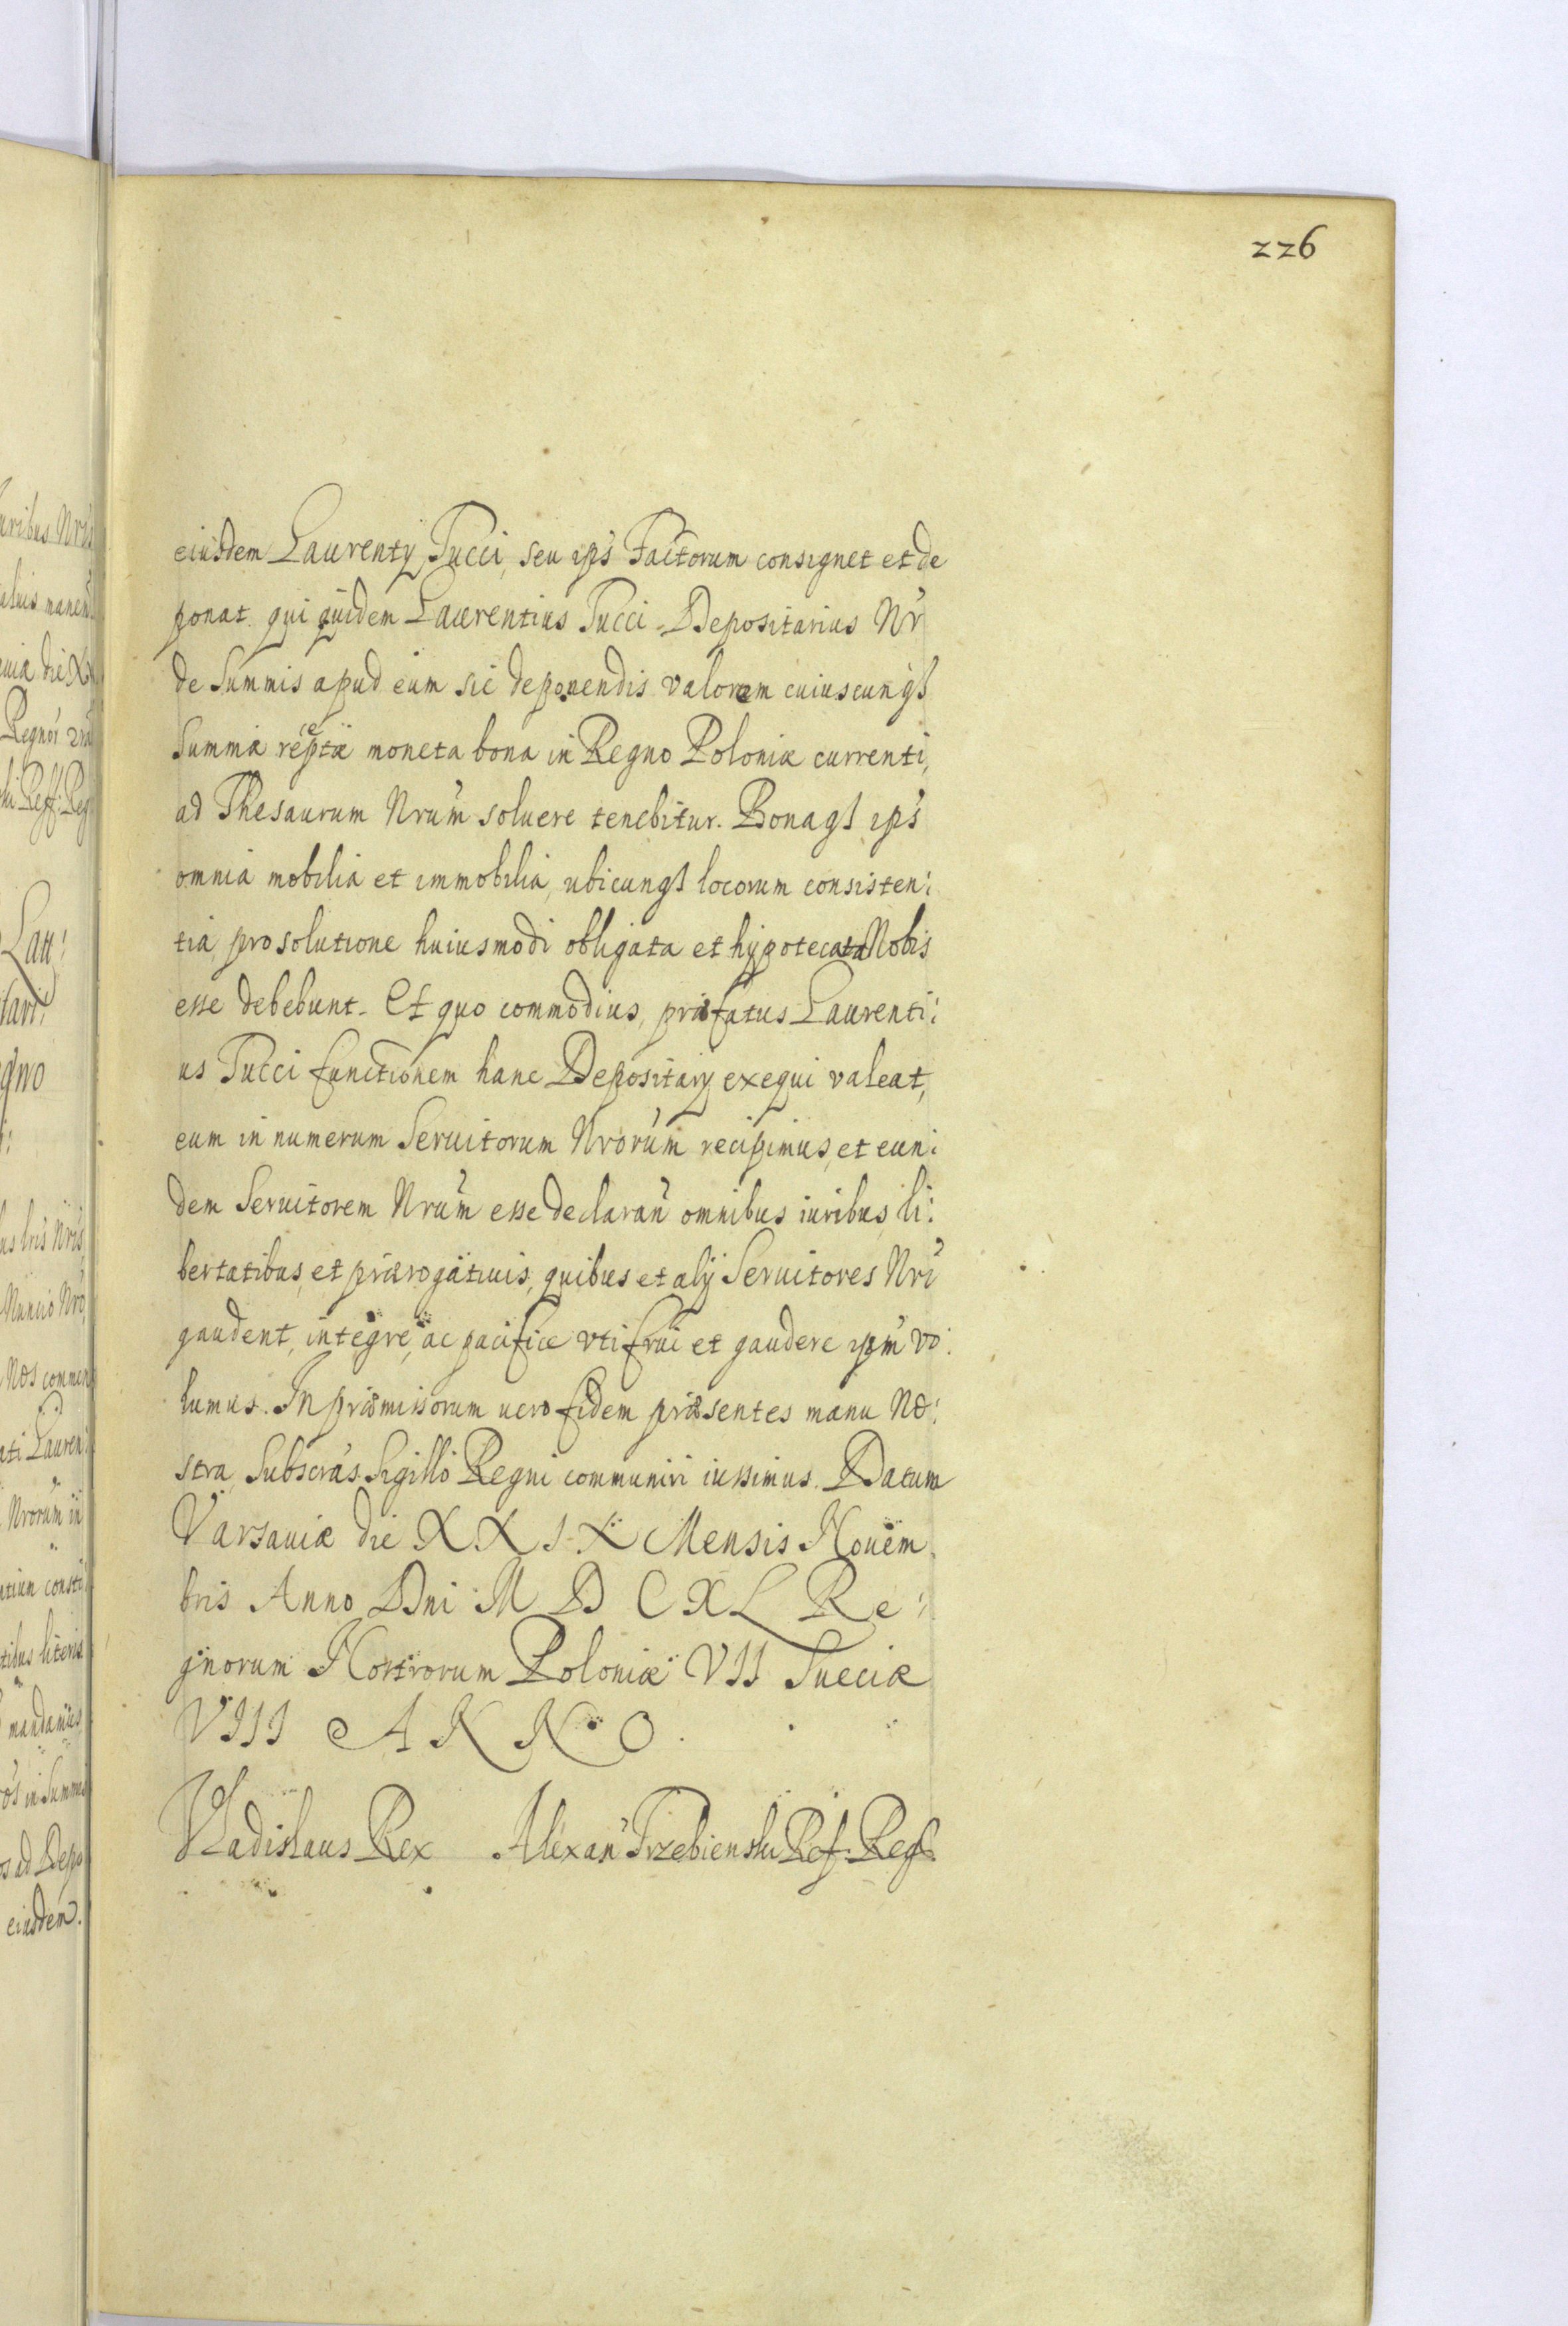 226
eiusdem Laurenty Tucci, seu ips Factorum consignet et de
ponat. qui quidem Laurentius Tucci Depositarius Nr
de Summis apud eum sic deponendis valorem cuiuscunqȝ
Summæ reptæ moneta bona in Regno Poloniæ currenti,
ad Thesaurum Nrum soluere tenebitur. Bonaqȝ ips
omnia mobilia et immobilia, ubicunqȝ locorum consisten:
tia, pro solutione huiusmodi obligata et hypotecata Nobis
esse debebunt. Et quo commodius, præfatus Laurenti:
us Tucci functionem hanc Depositarij exequi valeat,
eum in numerum Seruitorum Nrorum recipimus, et eun:
dem Seruitorem Nrum esse declaran omnibus iuribus, li:
bertatibus, et prærogatiuis, quibus et alij Seruitores Nri
gaudent, integre, ac pacifice vti frui et gaudere ipm vo:
lumus. In præmissorum uero fidem præsentes manu No:
stra Subscras Sigillo Regni communiri iussimus. Datum
Varsauiæ die XXIX Mensis Nouem
bris Anno Dni M D C XL Re:
gnorum Nostrorum Poloniæ VII Sueciæ
VIII ANNO.
Vladislaus Rex Alexan Trzebienski Ref. Reg.
uribus Nris
Regnor
Lau:
gno
Nuncio Nro,
Nos commen
ati Lauren:
Nrorum in
tibus literis
mandamus
in Summis
os ad Depo
eiusdem.